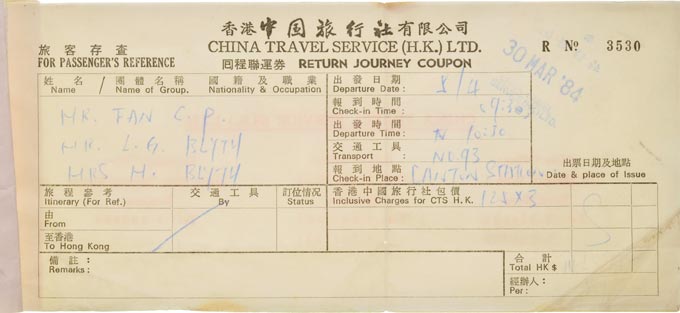 香港中国旅行社有限公司
旅客存查 CHINA TRAVEL SERVICE (H.K.) LTD. R Nº 3530
FOR PASSENGER'S REFERENCE 回程聯運券 RETURN JOURNEY COUPON
30 MAR '84
姓名／團體名稱 國籍及職業 出發日期
Name / Name of Group. Nationality & Occupation Departure Date : 8/4
報到時間
Check-in Time :
MR. TAN C.P. 出發時間
Departure Time : 10:30
MR. L.G. BLYTH 交通工具
Transport : NO.93
MRS H. BLYTH 報到地點 出票日期及地點
Check-in Place : CANTON STATION Date & place of Issue
旅程參考 交通工具 訂位情況 香港中國旅行社包價
Itinerary (For Ref.) By Status Inclusive Charges for CTS H.K. 125 X 3
由
From
至香港
To Hong Kong
備註： 合計
Remarks : Total HK $
經辦人：
Per :